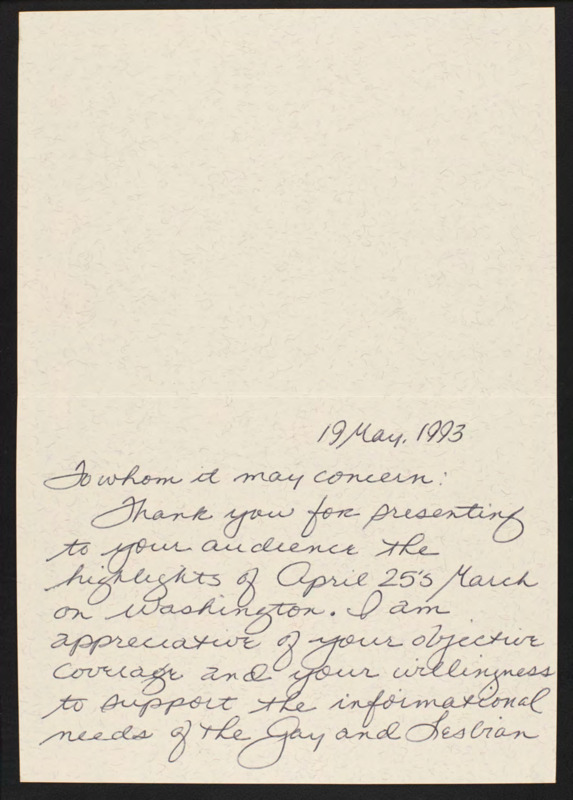 19 May. 1993
To whom it may concern:
Thank you for presenting
to your audience the
highlights of April 25's March
on Washington. I am
appreciative of your objective
coverage and your willingness
to support the informational
needs of the Gay and Lesbian